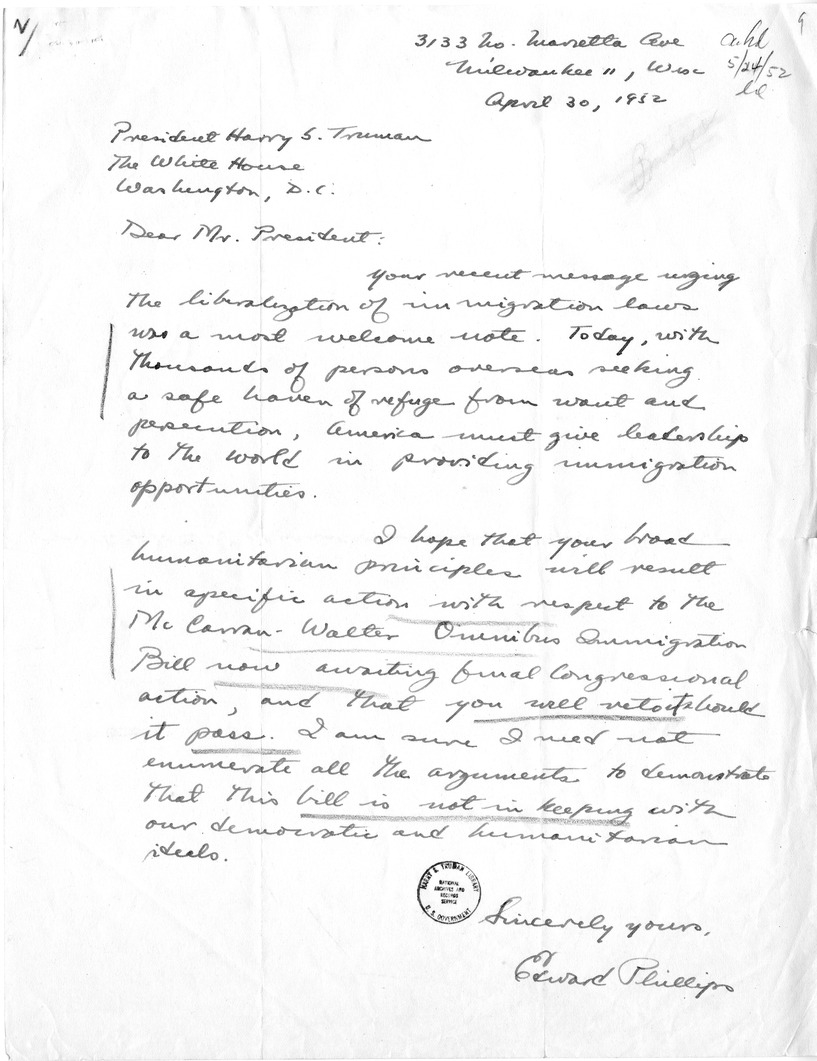 3133 No. Marietta Ave
Milwaukee 11, Wisc
April 30, 1952
5/24/52
President Harry S. Truman
The White House
Washington, D.C.
Dear Mr. President:
Your recent message urging
the liberalization of immigration laws
was a most welcome note. Today, with
thousands of persons overseas seeking
a safe haven of refuge from want and
persecution, America must give leadership
to the world in providing immigration
opportunities.
I hope that your broad
humanitarian principles will result
in specific action with respect to the
McCarran-Walter Omnibus Immigration
Bill now awaiting final Congressional
action, and that you will veto it should
it pass. I am sure I need not
enumerate all the arguments to demonstrate
that this bill is not in keeping with
our democratic and humanitarian
ideels.
HARRY S. TRUMAN LIBRARY
NATIONAL
ARCHIVES AND
RECORDS
SERVICE
U.S. GOVERNMENT
Sincerely yours,
Edward Phillips